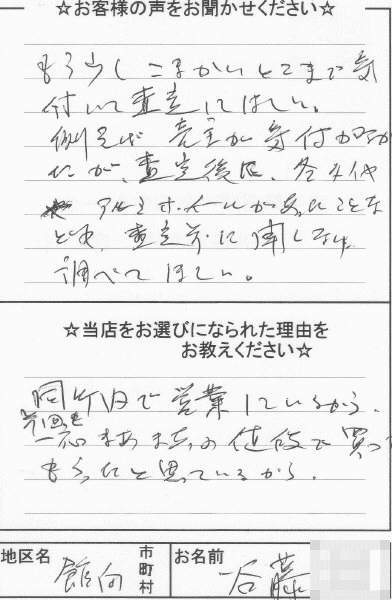 ☆お客様の声をお聞かせください☆
もう少しこまかいとこまで気
付いて査定してほしい。
例えば 売主が気付かなか
たが、査定後に、冬タイヤ
アルミホイールがあったことな
ど、査定前に
調べてほしい。
☆当店をお選びになられた理由を
お教えください☆
同じ町内で営業しているから。
前回も
一応まあまあの値段で買って
もらったと思っているから。
地区名
市町村
お名前
後藤